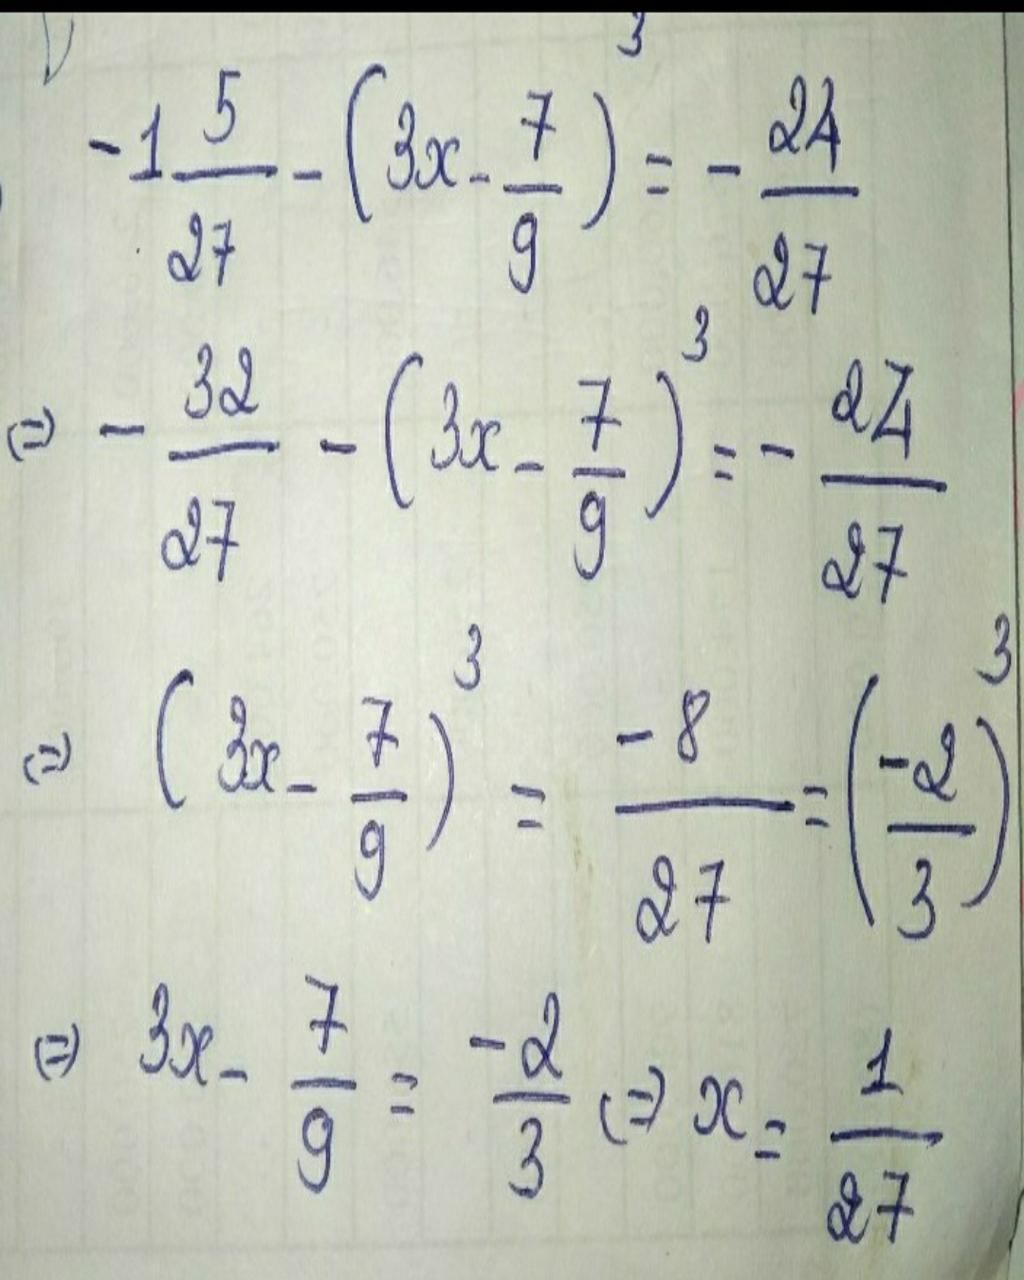 -1 5/27 - (3x - 7/9)³ = - 24/27
⇔ - 32/27 - (3x - 7/9)³ = - 24/27
⇔ (3x - 7/9)³ = -8/27 = (-2/3)³
⇔ 3x - 7/9 = -2/3 ⇔ x = 1/27